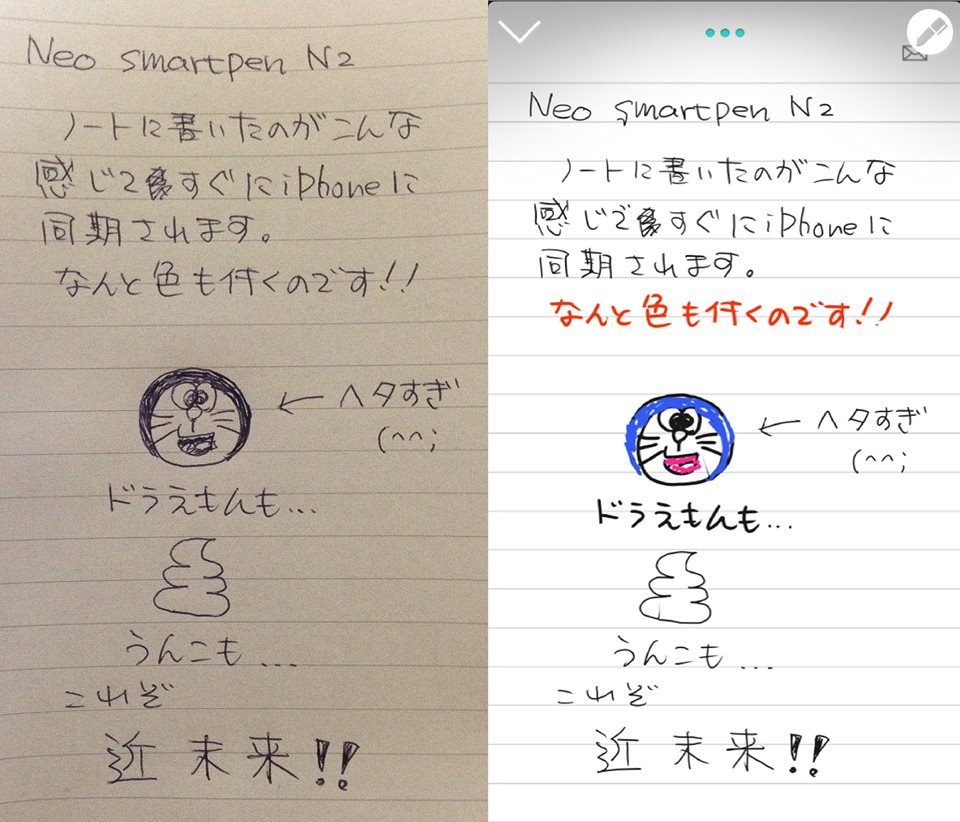 Neo smartpen N2
ノートに書いたのがこんな
感じですぐにiPhoneに
同期されます。
なんと色も付くのです!!
← ヘタすぎ
(^^;
ドラえもんも...
うんこも...
これぞ
近未来!!
Neo smartpen N2
ノートに書いたのがこんな
感じですぐにiPhoneに
同期されます。
なんと色も付くのです!!
← ヘタすぎ
(^^;
ドラえもんも...
うんこも...
これぞ
近未来!!